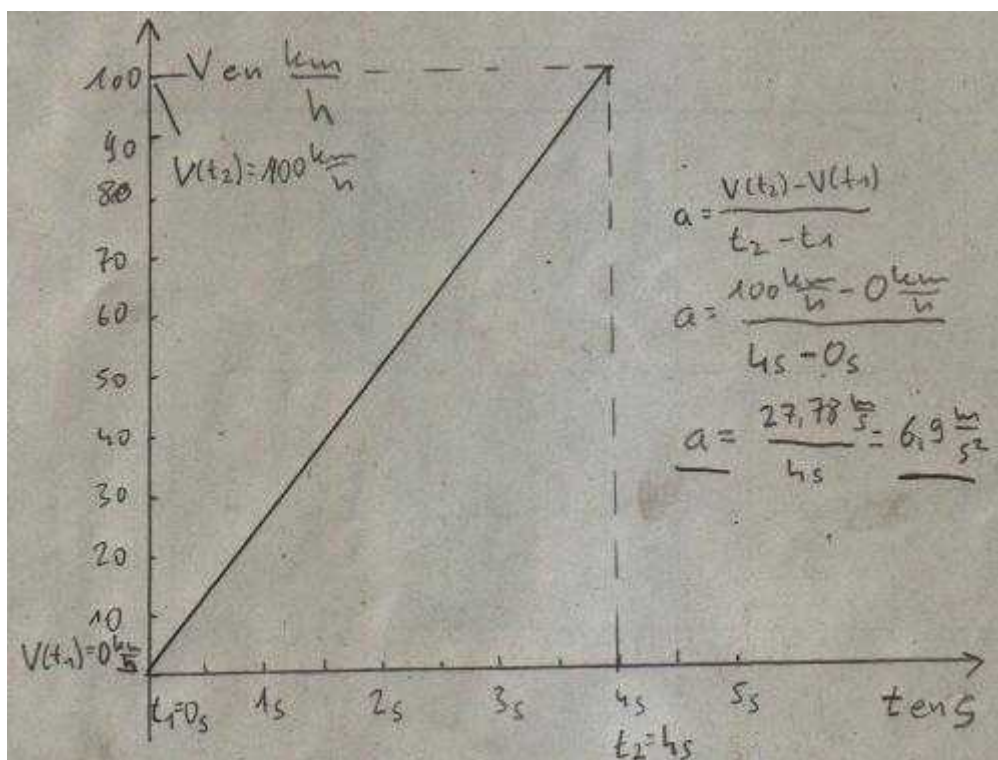 100 V en km/h
90
V(t₂)=100 km/h
80
70
60
50
40
30
20
10
V(t₁)=0 km/h
t₁=0s 1s 2s 3s 4s 5s t en s
t₂=4s
a = (V(t₂)-V(t₁))/(t₂-t₁)
a = (100 km/h - 0 km/h)/(4s-0s)
a = (27,78 m/s)/(4s) = 6,9 m/s²